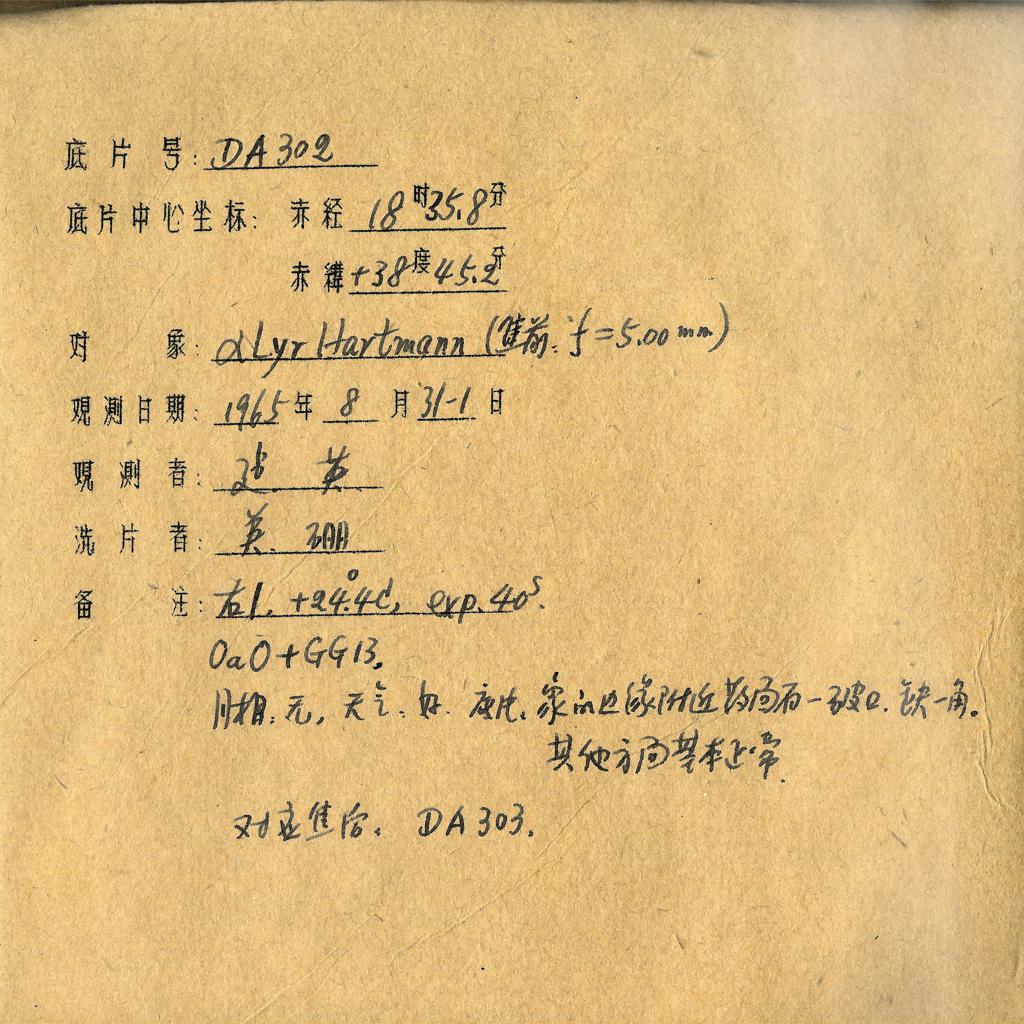 底片号: DA302
底片中心坐标: 赤经 18时35.8分
赤纬 +38度45.2分
对象: αLyr Hartmann (焦前: f=5.00mm)
观测日期: 1965年8月31-1日
观测者: 建. 英.
洗片者: 英. 珊
备注: 右1. +24°.4c, exp. 40s.
OaO+GG13.
月相: 无. 天气: 好. 底片: 象的边缘附近 一破口. 缺一角.
其他方向基本正常.
对应焦后: DA303.